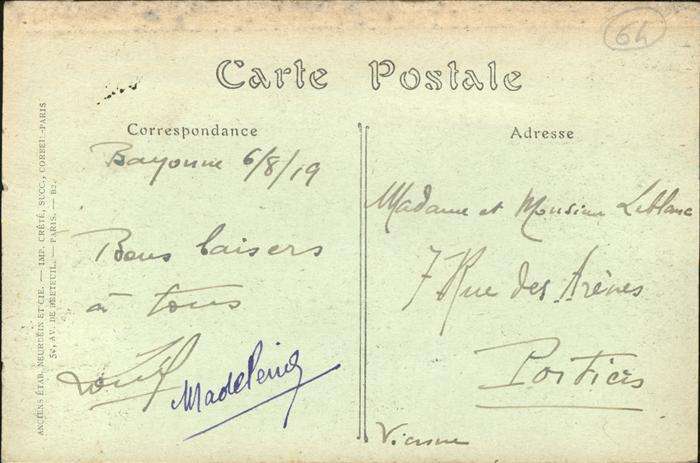 64
Carte Postale
Correspondance
Bayonne 6/8/19
Bons baisers
à tous
Louis
Madeleine
Adresse
Madame et Monsieur Leblanc
7 Rue des Arènes
Poitiers
Vienne
ANCIENS ÉTAB. NEURDEIN ET CIE. — IMP. CRÉTÉ, SUCC., CORBEIL-PARIS
52, AV. DE BRETEUIL. — PARIS. —